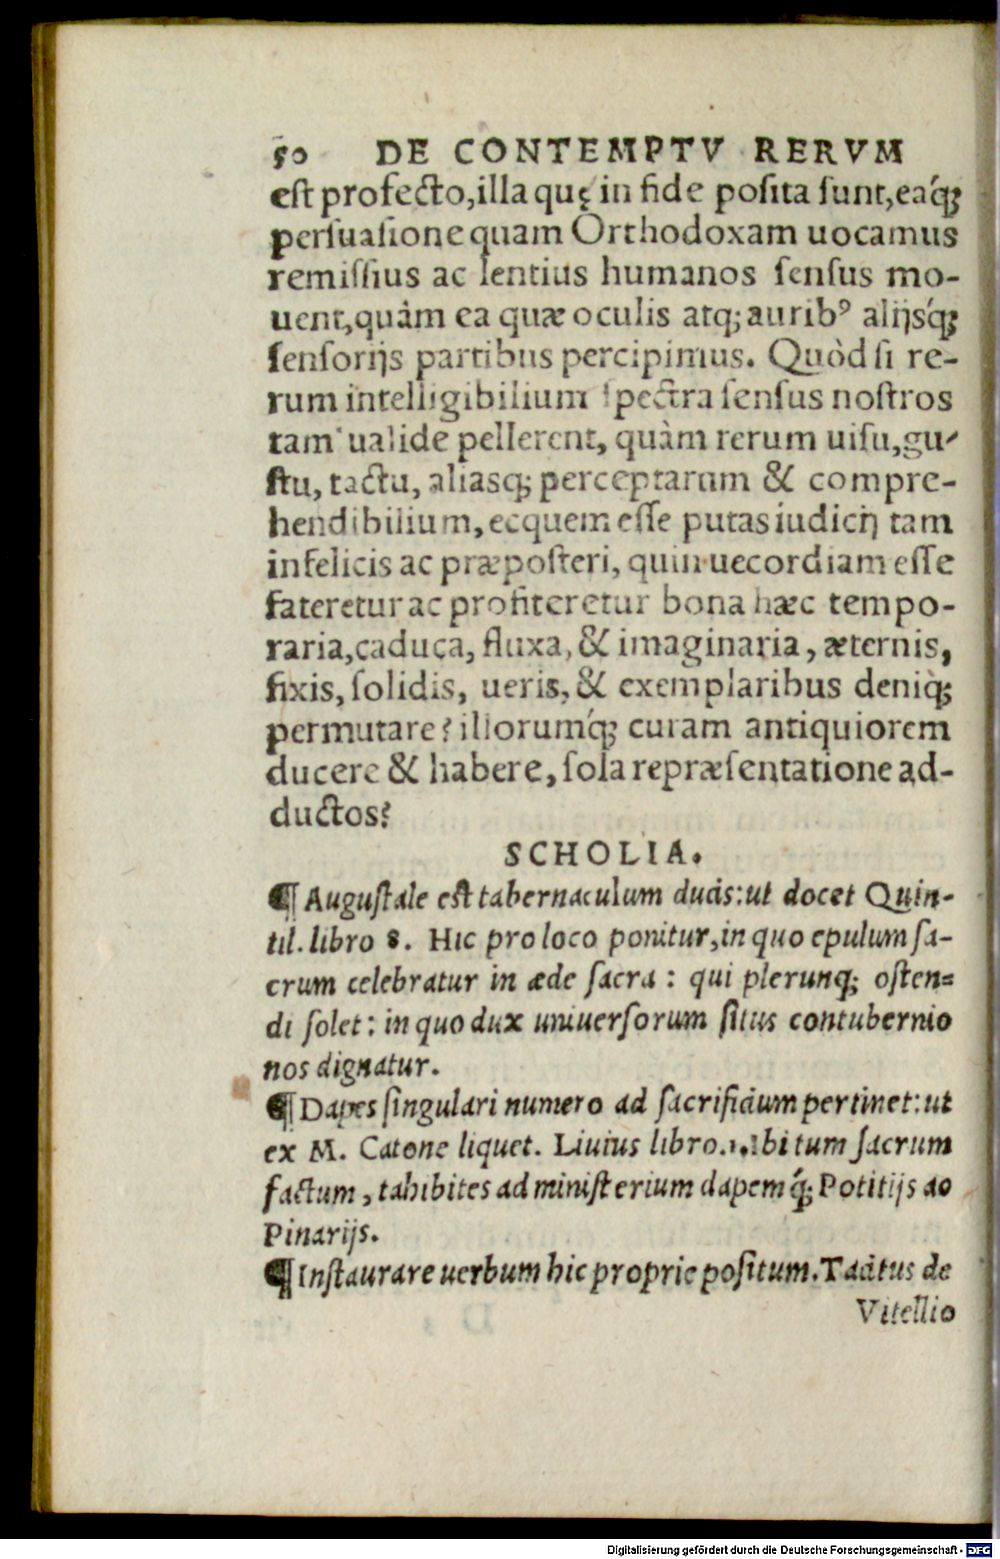 50 DE CONTEMPTV RERVM
est profecto,illa quę in fide posita sunt,eaq́;
persuasione quam Orthodoxam uocamus
remissius ac lentius humanos sensus mo-
uent,quàm ea quæ oculis atq; auribꝰ alijsq́;
sensorijs partibus percipimus. Quòd si re-
rum intelligibilium spectra sensus nostros
tam ualide pellerent, quàm rerum uisu,gu-
stu, tactu, aliasq; perceptarum & compre-
hendibilium, ecquem esse putas iudicij tam
infelicis ac præposteri, quin uecordiam esse
fateretur ac profiteretur bona hæc tempo-
raria,caduca, fluxa, & imaginaria, æternis,
fixis, solidis, ueris, & exemplaribus deniq̀;
permutare? illorumq́; curam antiquiorem
ducere & habere, sola repræsentatione ad-
ductos?
SCHOLIA.
¶ Augustale est tabernaculum ducis: ut docet Quin-
til. libro 8. Hic pro loco ponitur, in quo epulum sa-
crum celebratur in æde sacra : qui plerunq; osten-
di solet : in quo dux uniuersorum situs contubernio
nos dignatur.
¶ Dapes singulari numero ad sacrificium pertinet: ut
ex M. Catone liquet. Liuius libro.1. Ibi tum sacrum
factum, administerium dapemq́; Potitijs ac
Pinarijs.
¶ Instaurare uerbum hic proprie positum. Tacitus de
Vitellio
Digitalisierung gefördert durch die Deutsche Forschungsgemeinschaft - DFG